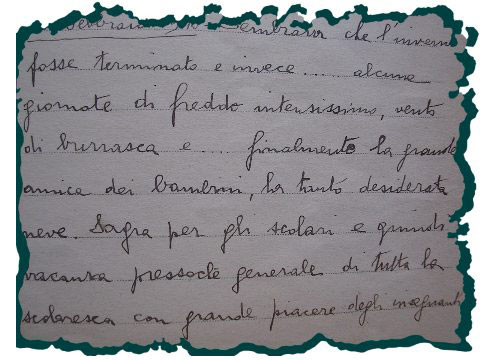 Sembrava che l'inverno
fosse terminato e invece .... alcune
giornate di freddo intensissimo, vento
di burrasca e .... finalmente la grande
amica dei bambini, la tanto desiderata
neve. Sagra per gli scolari e quindi
vacanza pressoché generale di tutta la
scolaresca con grande piacere degli insegnanti